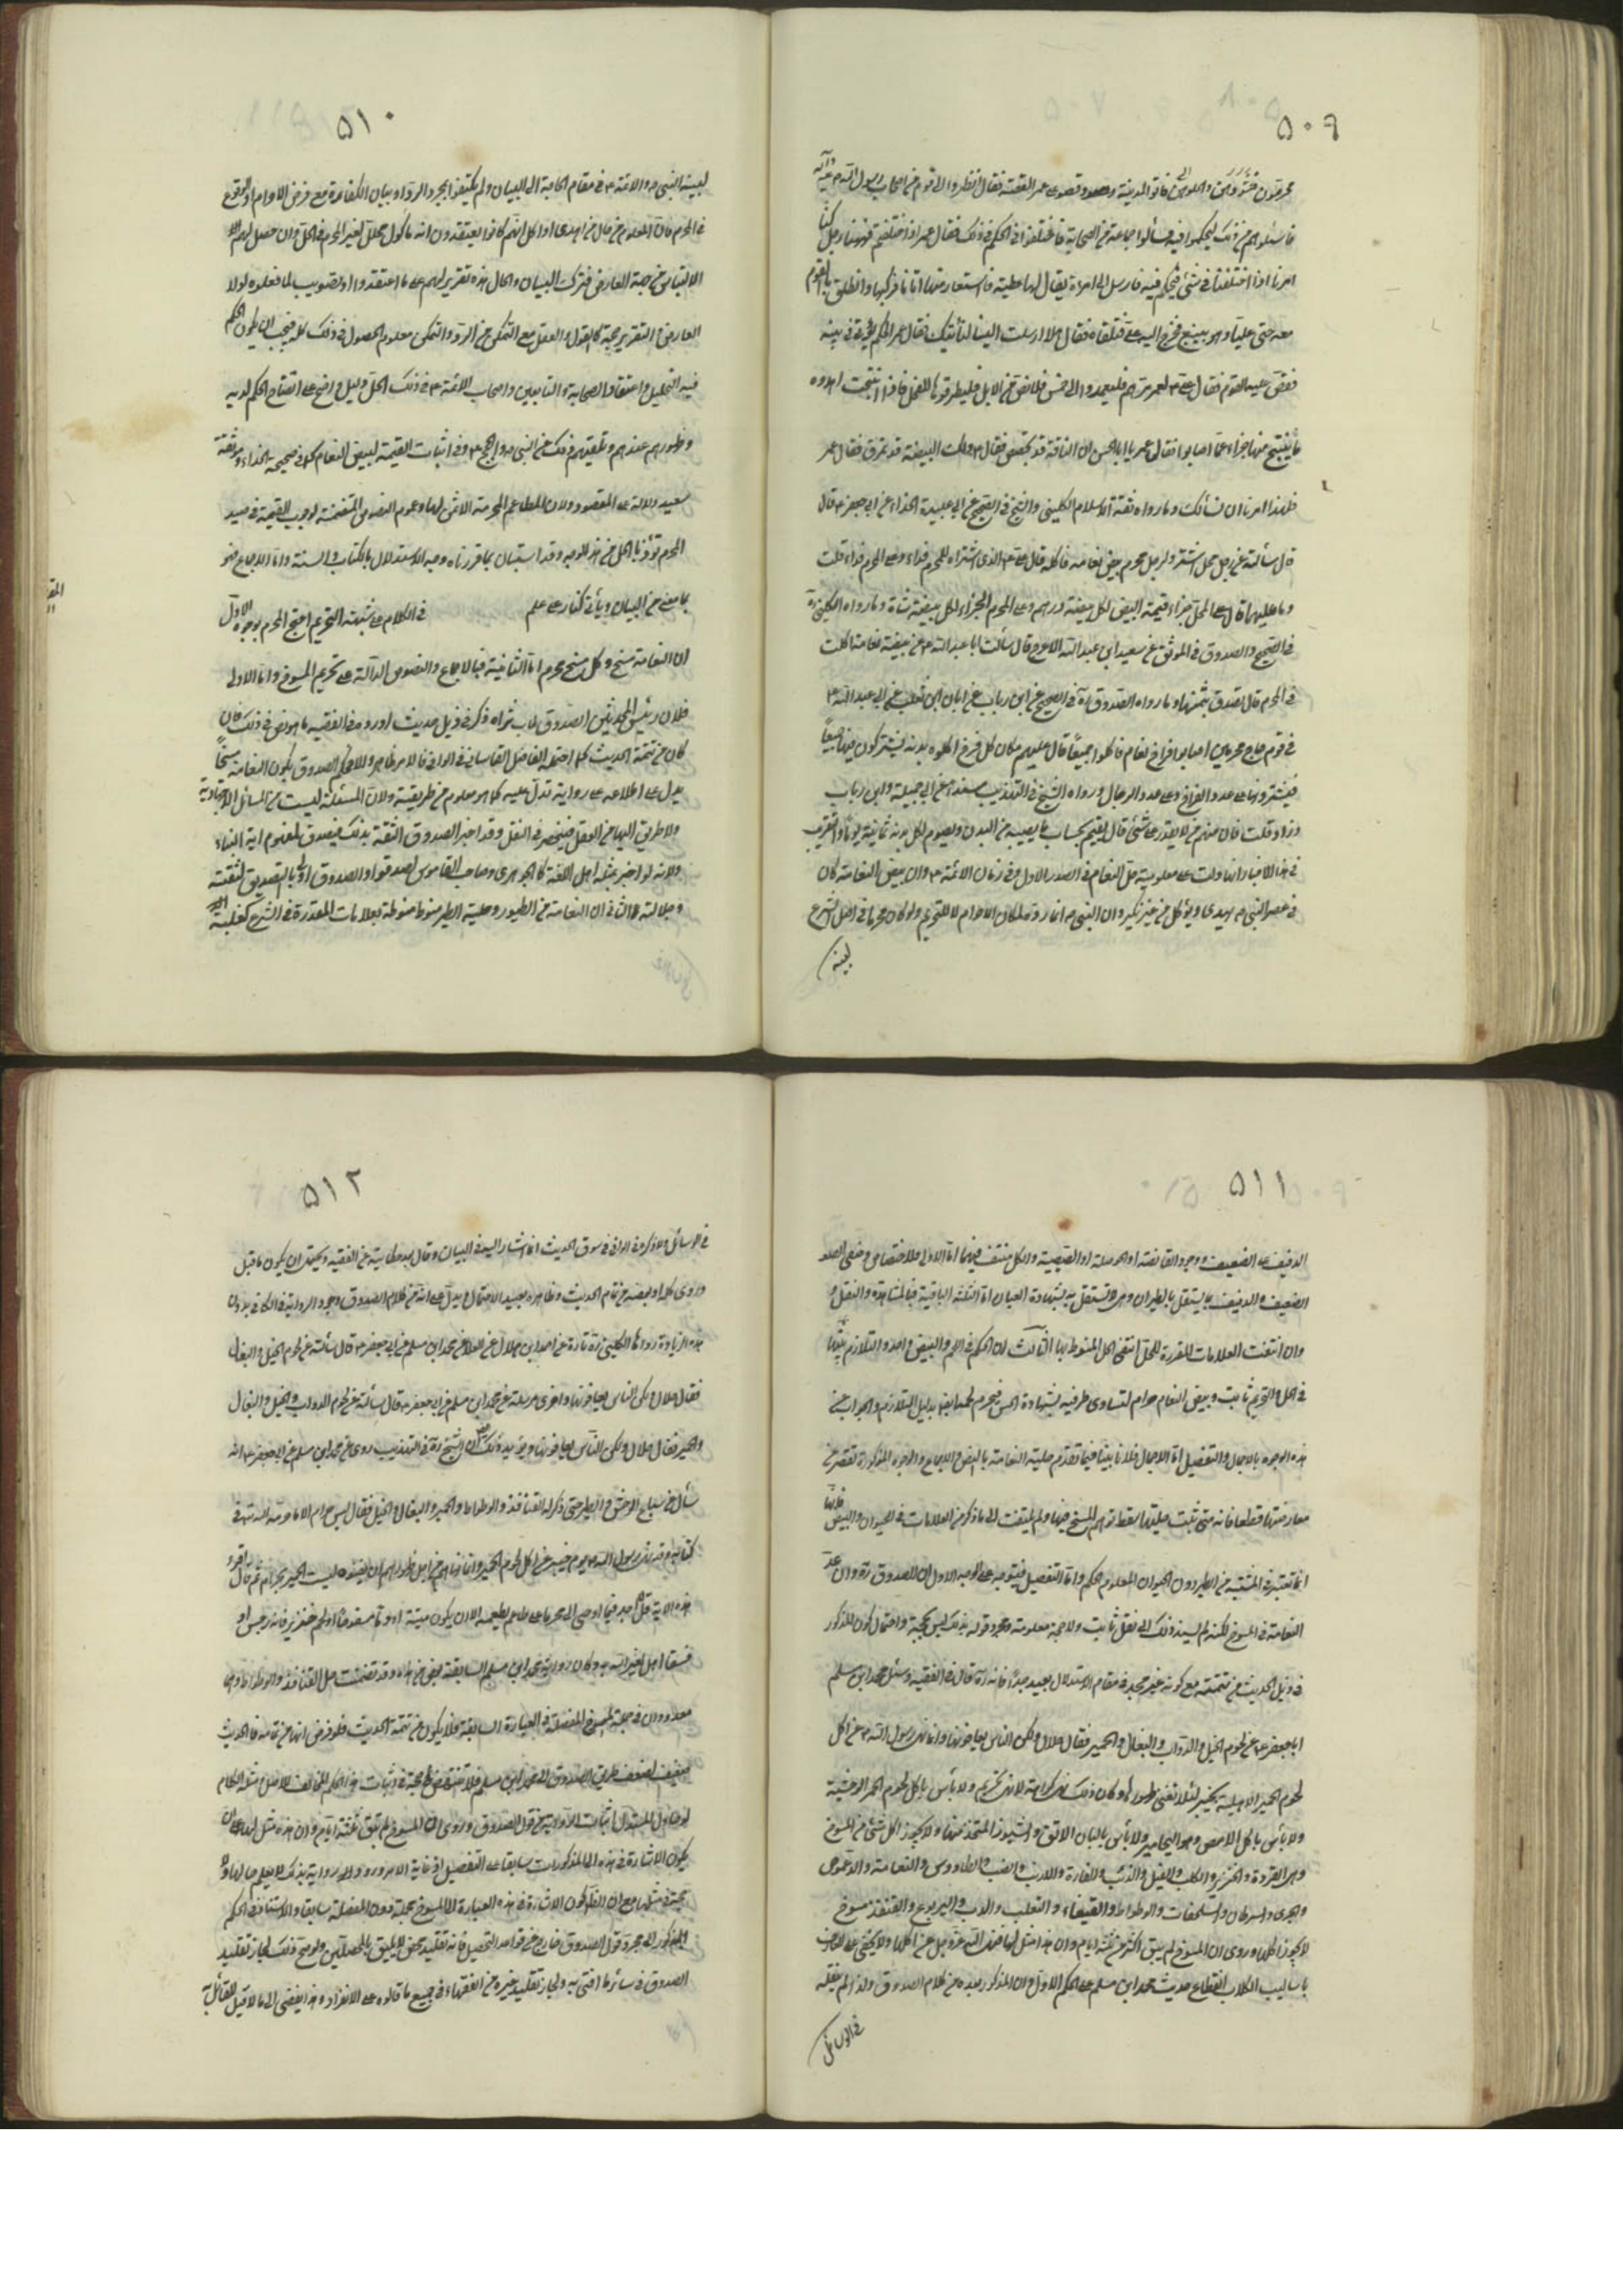 ٥٠٩
فاسئلوهم عن ذلك ليحكموا فيه فسألوا جماعة من الصحابة فاختلفوا في الحكم في ذلك فقال عمر اذا اختلفتم فههنا رجل كنا
امرنا اذا اختلفنا في شئ فيحكم فيه فارسل الى امراة يقال لها عطية فاستعار منها اتانا فركبها وانطلق بالقوم
معه حتى عليا وهو بينبع فخرج اليه علي فتلقاه فقال هلا ارسلت الينا فنأتيك فقال عمر الحكم يؤتى في بيته
فقص عليه القوم فقال علي ع لعمر مرهم فليعمدوا الى خمس قلائص من الابل فليطرقوها للفحل فاذا انتجت اهدوه
ما ينتج منها جزاء عما اصابوا فقال عمر يا ابا الحسن ان الناقة قد تجهض فقال ع وكذلك البيضة قد تمرق فقال عمر
فلهذا امرنا ان نسألك وما رواه ثقة الاسلام الكليني والشيخ في الصحيح عن ابي عبيدة الحذاء عن ابي جعفر ع قال
قال سألته عن رجل محل اشترى لرجل محرم بيض نعامة فاكله قال على الذي اشتراه للمحرم فداء وعلى المحرم فداء قلت
وما عليهما قال على المحل جزاء قيمة البيض لكل بيضة درهم وعلى المحرم الجزاء لكل بيضة شاة وما رواه الكليني
في الصحيح والصدوق في الموثق عن سعيد ابن عبد الله الاعرج قال سألت ابا عبد الله ع عن بيضة نعامة اكلت
في الحرم قال تصدق بثمنها وما رواه الصدوق ره في الصحيح عن ابن رباب عن ابان ابن تغلب عن ابي عبد الله ع
في قوم حجاج محرمين اصابوا فراخ نعام فاكلوا جميعا قال عليهم مكان كل فرخ اكلوه بدنة يشتركون فيها جميعا
فيشترونها على عدد الفراخ وعلى عدد الرجال ورواه الشيخ في التهذيب مسندا عن ابي جميلة وابن رباب
وزاد قلت فان منهم من لا يقدر على شئ قال يقوم بحساب ما يصيبه من البدن ويصوم لكل بدنة ثمانية عشر يوما والتقريب
في هذه الاخبار انها دلت على معلومية حل النعام في الصدر الاول وفي زمان الائمة ع وان بيض النعامة كان
في عصر النبي ص يهدى ويؤكل من غير نكير وان النبي ص انما رده لمكان الاحرام لا للتحريم ولو كان محرما في اصل الشرع
لبينه
٥١٠
لبينه النبي ص والائمة ع في مقام الحاجة الى البيان ولم يكتفوا بمجرد الرد او ببيان الكفارة مع فرض الاحرام او الوقوع
في الحرم فان المعلوم من حال من اهدى او اكل انهم كانوا يعتقدون انه مأكول محلل لغير المحرم في الحل وان حصل لهم
الالتباس من جهة العارض فترك البيان والحال هذه تقرير لهم على ما اعتقدوا او تصويب لما فعلوه لولا
العارض والتقرير حجة كالقول والفعل مع التمكن من الرد والتمكن معلوم الحصول في ذلك كله فيجب ان يكون الحكم
فيه التحليل واعتقاد الصحابة والتابعين واصحاب الائمة ع في ذلك الحل دليل واضح على اتضاح الحكم لديه
وظهوره عندهم وتلقيهم ذلك عن النبي ص والحجج ع وفي اثبات القيمة لبيض النعام كما في صحيحة الحذاء وموثقة
سعيد دلالة على المقصود ولان المطاعم المحرمة لا ثمن لها وعموم النصوص المتضمنة لوجوب القيمة في صيد
المحرم تؤذن بالحل من هذا الوجه وقد استبان بما قررناه وجه الاستدلال بالكتاب والسنة واما الاجماع فهو
بما مضى من البيان ويأتي كنار على علم في الكلام على شبهة التحريم احتج المحرم بوجوه الاول
ان النعامة مسخ وكل مسخ محرم اما الثانية فبالاجماع والنصوص الدالة على تحريم المسوخ واما الاولى
فلان رئيس المحدثين الصدوق طاب ثراه ذكر في ذيل حديث اورده في الفقيه ما هو نص في ذلك فان
كان من تتمة الحديث كما احتمله الفاضل القاساني في الوافي فالامر ظاهر والا فحكم الصدوق بكون النعامة مسخا
يدل على اطلاعه على رواية تدل عليه كما هو معلوم من طريقته ولان المسئلة ليست من المسائل الاجتهادية
ولا طريق اليها من العقل فينحصر في النقل وقد اخبر الصدوق الثقة بذلك فيصدق لمفهوم اية النباء
ولانه لو اخبر بمثله اهل اللغة كالجوهري وصاحب القاموس لصدقوا والصدوق اولى بالتصديق لثقته
وجلالته الثاني ان النعامة من الطيور وحلية الطير منوط منوطة بعلامات المقدرة في الشرع كغلبة
٥١١
الدفيف على الصفيف ووجود القانصة او الحوصلة او الصيصية والكل منتف فيها اما الاول فلاختصاص وصفي
الصفيف والدفيف بما يستقل بالطيران وهي لا تستقل به بشهادة العيان اما الثلثة الباقية فبالمشاهدة والنقل
وان انتفت العلامات المقررة للحل انتفى الحل المنوط بها الثالث ان الحكم في اللحم والبيض واحد والتلازم بينهما
في الحل والتحريم ثابت وبيض النعام حرام لتساوى طرفيه بشهادة الحس فيحرم لحمها ايضا بدليل التلازم والجواب عن
هذه الوجوه بالاجمال والتفصيل اما الاجمال فلانا بينا فيما تقدم حلية النعامة بالنص والاجماع والوجوه المذكورة تقصر عن
معارضتها قطعا فانه متى ثبت حليتها سقط توهم المسخ فيها ولم يلتفت الى ما ذكر من العلامات في الحيوان والبيض فانها
انما تعتبر في المشتبه من الطير دون الحيوان المعلوم الحكم واما التفصيل فيتوجه على الوجه الاول ان الصدوق ره وان عد
النعامة في المسوخ لكنه لم يسند ذلك الى نقل ثابت ولا حجة معلومة ومجرد قوله بذلك ليس بحجة واحتمال كون المذكور
في ذيل الحديث من تتمته مع كونه غير مجد في مقام الاستدلال بعيد جدا فانه ره قال في الفقيه وسئل محمد ابن مسلم
ابا جعفر ع عن لحوم الخيل والدواب والبغال والحمير فقال حلال ولكن الناس يعافونها وانما نهى رسول الله ص عن اكل
لحوم الحمير الاهلية بخيبر لئلا تفنى ظهورها وكان ذلك نهي كراهة لا نهي تحريم ولا بأس باكل لحوم الحمر الوحشية
ولا بأس باكل الامص وهو اليحامير ولا بأس بالبان الاتن والشيراز المتخذ منها ولا يجوز اكل شئ من المسوخ
وهي القردة والخنزير والكلب والفيل والذئب والفارة والارنب والضب والطاووس والنعامة والدعموص
والجري والسرطان والسلحفات والوطواط والعيفاء والثعلب والدب واليربوع والقنفذ مسوخ
لا يجوز اكلها وروى ان المسوخ لم يبق اكثر من ثلثة ايام وان هذه مثل لها فنهى الله عز وجل عن اكلها ولا يخفى على العارف
باساليب الكلام انقطاع حديث محمد ابن مسلم على الحكم الاول وان المذكور بعده من كلام الصدوق ولذا لم ينقله
في الوسائل
٥١٢
في الوسائل ولا ذكره في الوافي في سوق الحديث انما اشار اليه في البيان وقال بعد حكايته عن الفقيه ويحتمل ان يكون ما قبل
وروى كله او بعضه من تمام الحديث وظاهره بعيد الاحتمال ويدل على انه من كلام الصدوق وجود الرواية في الكافي بدون
هذه الزيادة رواها الكليني ره تارة عن احمد ابن هلال عن العلا عن محمد ابن مسلم عن ابي جعفر ع قال سألته عن لحوم الخيل والبغال
فقال حلال ولكن الناس يعافونها واخرى مرسلة عن محمد ابن مسلم عن ابي جعفر ع قال سألته عن لحوم الدواب والخيل والبغال
والحمير فقال حلال ولكن الناس يعافونها ويؤيد ذلك ان الشيخ ره في التهذيب روى عن محمد ابن مسلم عن ابي جعفر ع انه
سأل عن سباع الوحش والطير حتى ذكر له القنافذ والوطواط والحمير والبغال والخيل فقال ليس حرام الا ما حرمه الله في
كتابه وقد نهى رسول الله ص يوم خيبر عن اكل لحوم الحمير وانما نهاهم من اجل ظهورهم ان يفنوه ليست الحمير بحرام ثم قال اقرء
هذه الاية قل لا اجد فيما اوحي الى محرما على طاعم يطعمه الا ان يكون ميتة او دما مسفوحا او لحم خنزير فانه رجس او
فسقا اهل لغير الله به وكان رواية محمد ابن مسلم السابقة بعض من هذه وقد تضمنت حل القنافذ والوطواط وهما
معدودان في جملة المسوخ المفصلة في العبارة السابقة فلا يكون من تتمة الحديث فلو فرض انها من تمامه فالحديث
ضعيف لضعف طريق الصدوق الى محمد ابن مسلم فلا تنتهض حجة في اثبات هذا الحكم المخالف للاصل
يكون الاشارة في هذه الى المذكورات سابقا على التفصيل
المذكور الى مجرد قول الصدوق خارج عن قواعد التحصيل فانه تقليد محض لا يليق بالمحصلين ولو صح ذلك لجاز تقليد
الصدوق في سائر ما افتى به ولجاز تقليد غيره من الفقهاء في جميع ما قالوه على الانفراد وهذا يفضي الى ما لا قبل